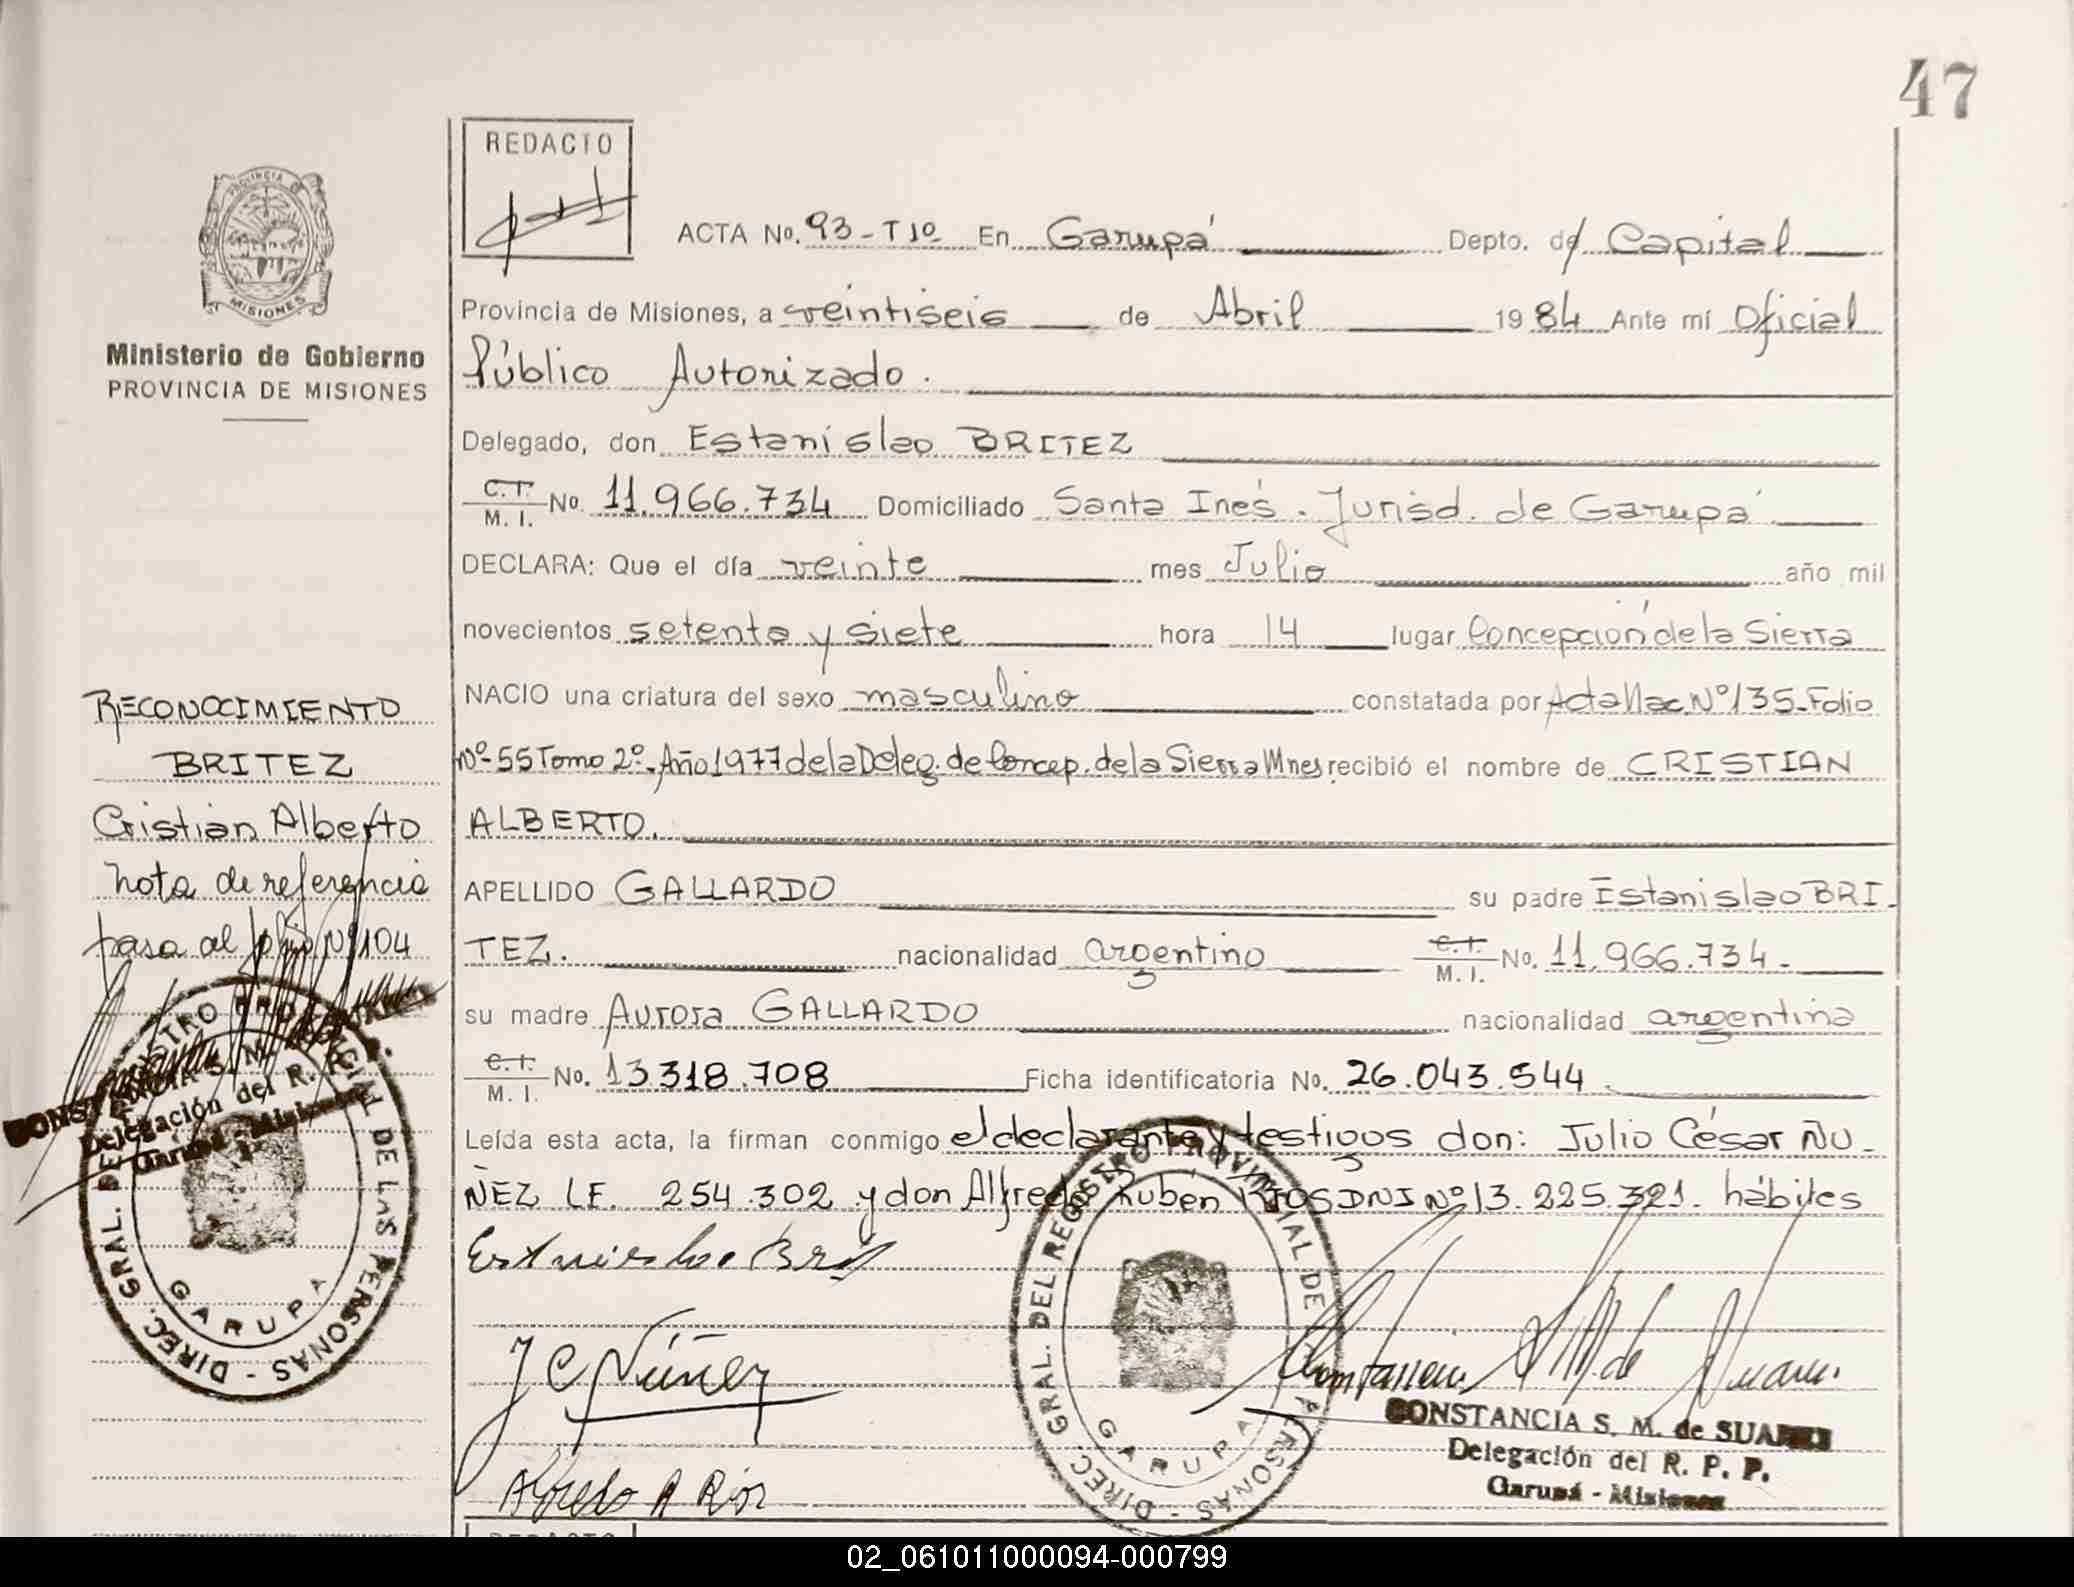 47
REDACTO
ACTA No. 93-T1º En Garupá Depto. de Capital
PROVINCIA D MISIONES
Provincia de Misiones, a veintiseis de Abril 1984 Ante mí Oficial
Ministerio de Gobierno
PROVINCIA DE MISIONES
Público Autorizado.
Delegado, don Estanislao BRITEZ
C.T. M. I. No. 11.966.734 Domiciliado Santa Inés. Jurisd. de Garupá
DECLARA: Que el día veinte mes Julio año mil
novecientos setenta y siete hora 14 lugar Concepción de la Sierra
NACIO una criatura del sexo masculino constatada por Acta Nac. Nº 135-Folio
Nº-55 Tomo 2º-Año 1977 de la Deleg. de Concep. de la Sierra Mnes recibió el nombre de CRISTIAN
ALBERTO.
APELLIDO GALLARDO su padre Estanislao BRI-
TEZ. nacionalidad argentino C.I. M. I. No. 11.966.734-
su madre Aurora GALLARDO nacionalidad argentina
C.I. M. I. No. 13318.708 Ficha identificatoria No. 26.043.544.
Leída esta acta, la firman conmigo el declarante y testigos don: Julio César ÑU-
ÑEZ LE. 254.302 y don Alfredo Rubén RIOS DNI Nº 13.225.321. hábiles
RECONOCIMIENTO
BRITEZ
Cristian Alberto
Nota de referencia
pasa al folio Nº 104
CONSTANCIA S. M.
Delegación del R. P.
Garupá - Misiones
DIREC. GRAL. DEL REGISTRO PROVINCIAL DE LAS PERSONAS -
GARUPA
J C Núñez
Alfredo R Rios
DIREC. GRAL. DEL REGISTRO PROVINCIAL DE PERSONAS -
GARUPA
CONSTANCIA S. M. de SUAREZ
Delegación del R. P. P.
Garupá - Misiones
REDACTO
02_061011000094-000799